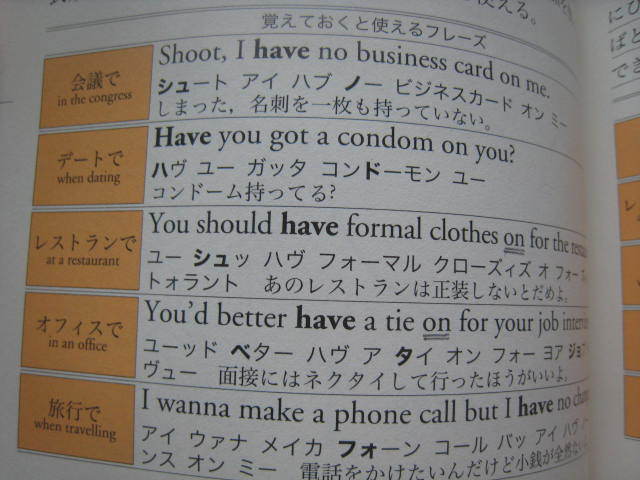 使える。
覚えておくと使えるフレーズ
会議で
in the congress
Shoot, I have no business card on me.
シュート アイ ハブ ノー ビジネスカード オン ミー
しまった，名刺を一枚も持っていない。
デートで
when dating
Have you got a condom on you?
ハヴ ユー ガッタ コンドーモン ユー
コンドーム持ってる?
レストランで
at a restaurant
You should have formal clothes on for the
ユー シュッ ハヴ フォーマル クローズィズ オ フォー
トォラント あのレストランは正装しないとだめよ。
オフィスで
in an office
You'd better have a tie on for your job
ユーッド ベター ハヴ ア タイ オン フォー ヨア ジョブ
ヴュー 面接にはネクタイして行ったほうがいいよ。
旅行で
when travelling
I wanna make a phone call but I have no
アイ ウァナ メイカ フォーン コール バッ アイ ハヴ
ンス オン ミー 電話をかけたいんだけど小銭が全然ない